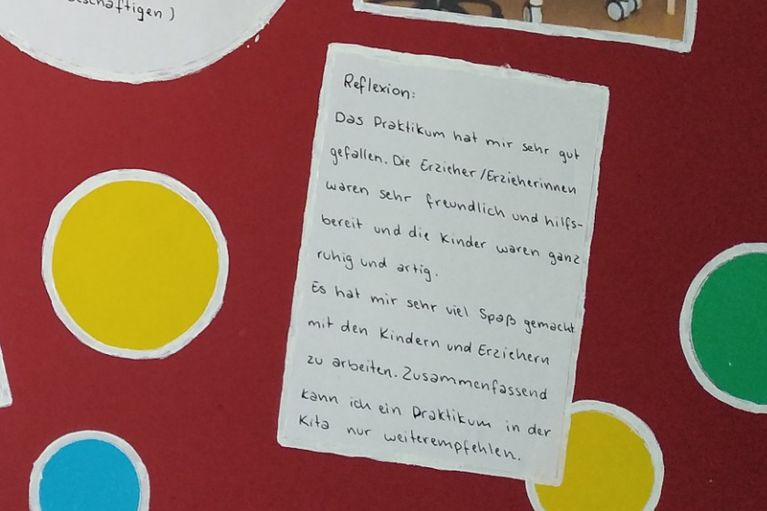 Reflexion:
Das Praktikum hat mir sehr gut
gefallen. Die Erzieher/Erzieherinnen
waren sehr freundlich und hilfs-
bereit und die Kinder waren ganz
ruhig und artig.
Es hat mir sehr viel Spaß gemacht
mit den Kindern und Erziehern
zu arbeiten. Zusammenfassend
kann ich ein Praktikum in der
Kita nur weiterempfehlen.